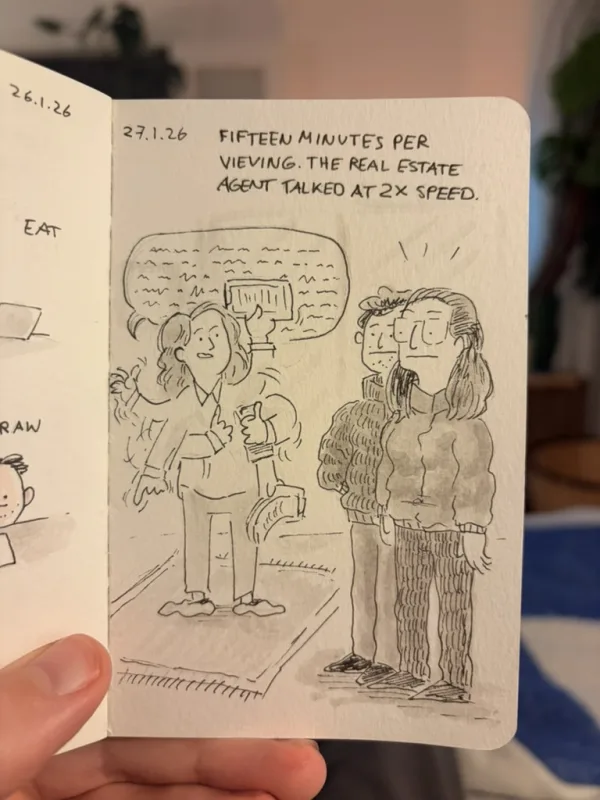 26.1.26
EAT
RAW
27.1.26
FIFTEEN MINUTES PER
VIEVING. THE REAL ESTATE
AGENT TALKED AT 2X SPEED.